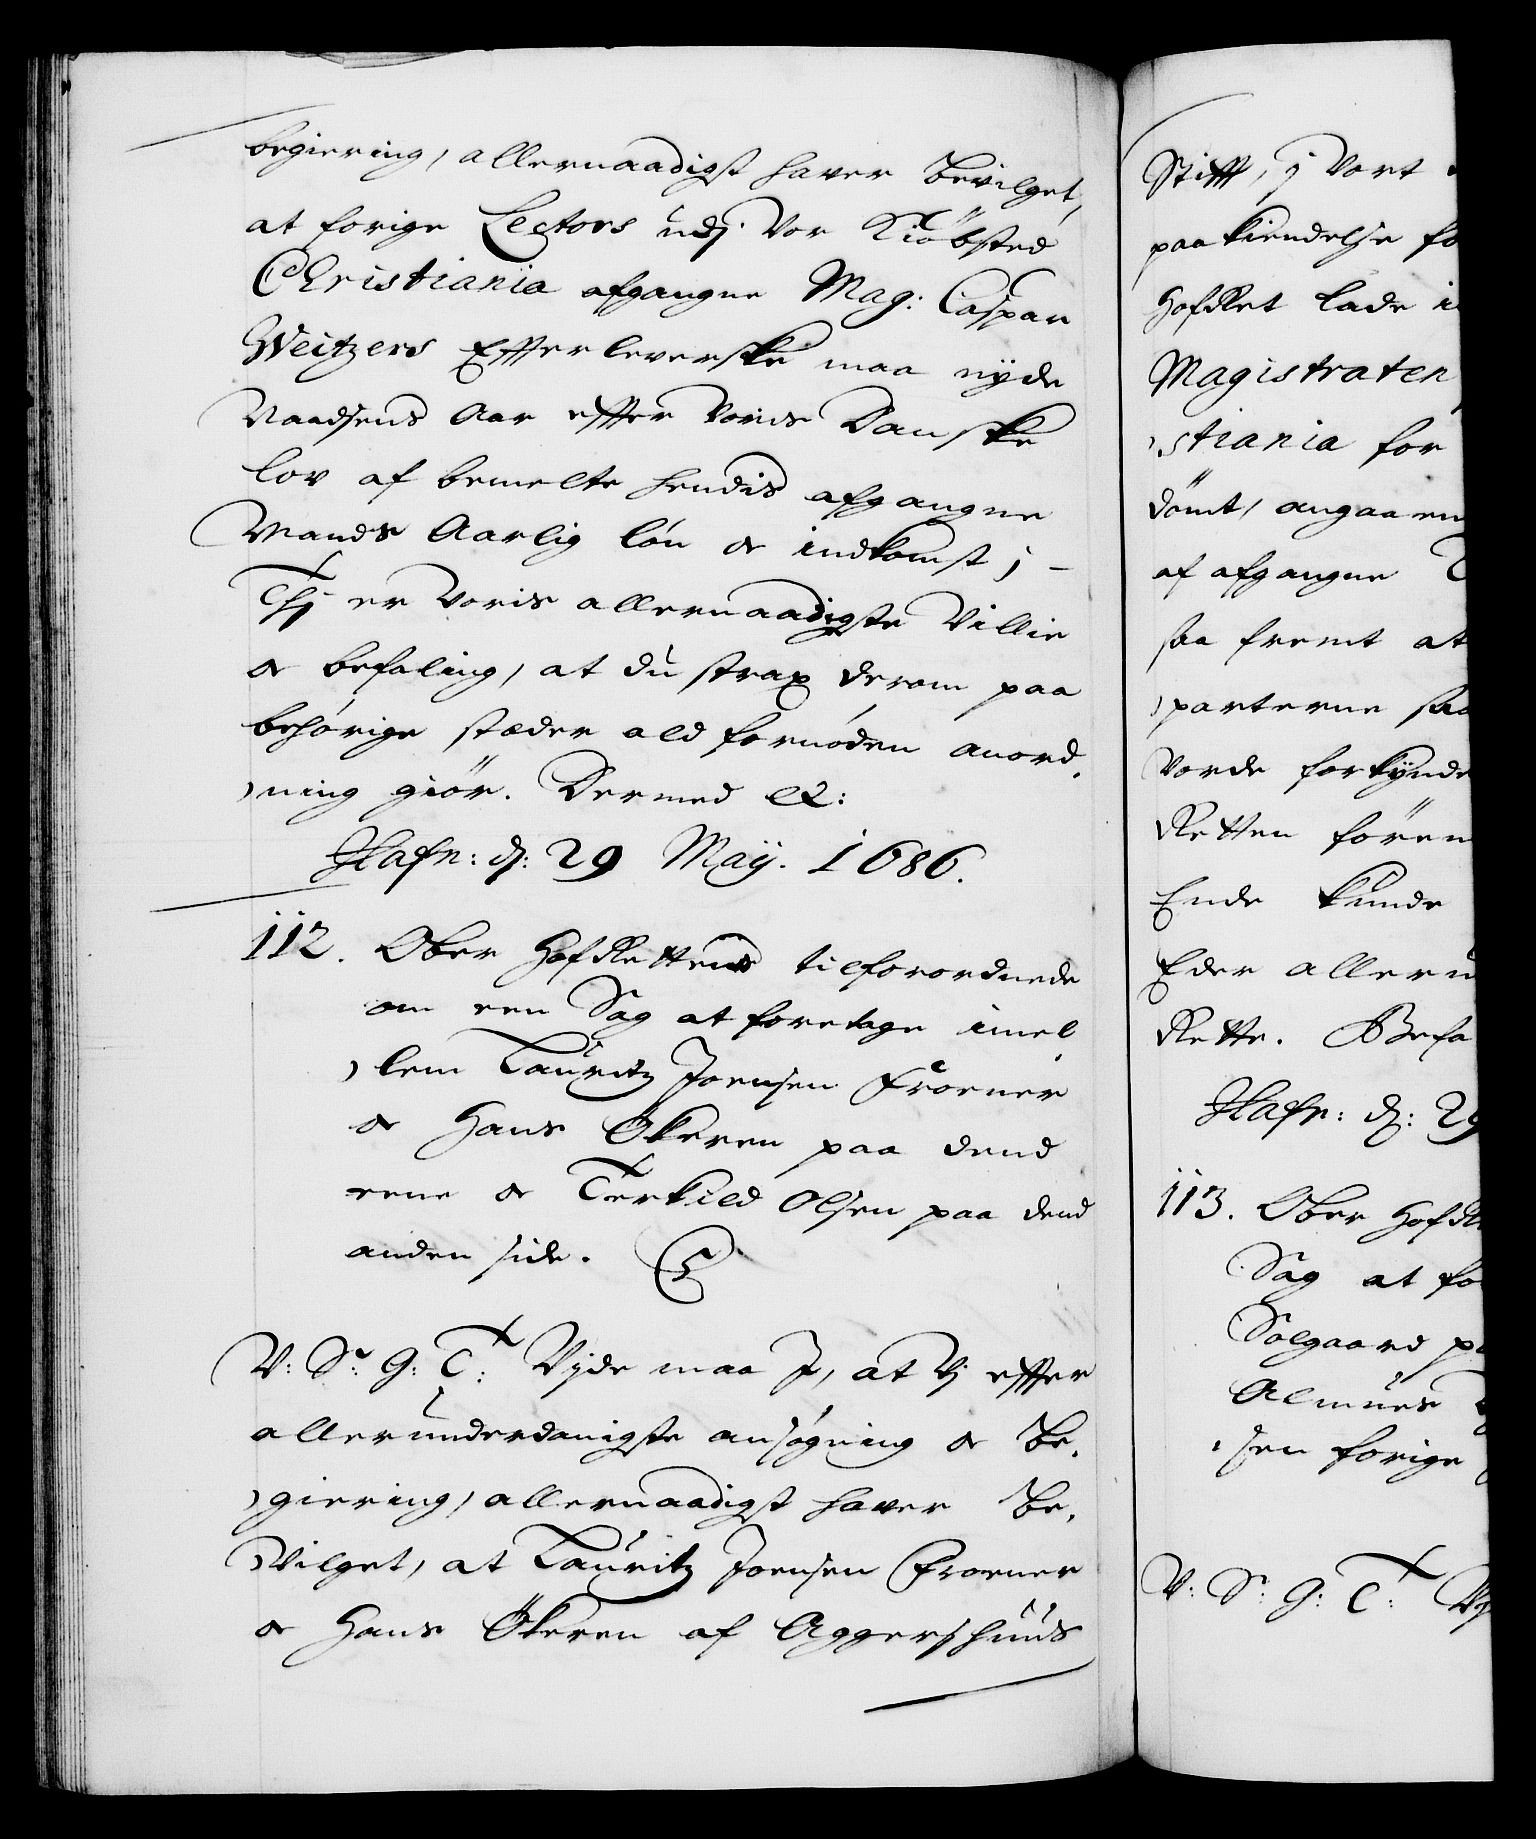 begiering, allernaadigst hafver bevilget,
at forige Lectors udj vor Kiöbsted
Christiania afgangne Mag: Caspar
Weitzers Effterleverske maa nyde
Naadsens Aar effter Voris Danske
lov af bemelte hendis afgangne
Mands Aarlig løn oc indkomst j -
Thj er voris allernaadigste Villie
oc befaling, at du strax derom paa
behörige stæder ald fornöden anord,
ning giör. Dermed etc:
Hafn: d: 29 Maij. 1686.
112. Ober HofRettens tilforordnede
om een Sag at foretage imel,
lem Lauritz Joensen Froener
oc Hans Økeren paa dend
eene oc Terkild Olsen paa dend
anden side.
V: Sr: G: T: Vide maa J, at Vj effter
allerunderdanigste ansøgning oc be,
giering, allernaadigst hafver be,
vilget, at Lauritz Joensen Froener
oc Hans Økeren af Aggershuus
Stifft, j vort
paakiendelse fo
HofRet lade i
Magistraten
stiania for
dömt, angaaen
af afgangne
saa fremt at
parterne saa
vorde forkynde
Retten fören
Ende kunde
Eder alleru
Rette. Befa
Hafn: d: 29
113. Ober HofR
Sag at fo
Solgaard p
Almues
sen forige
V: Sr: G: T: Vi